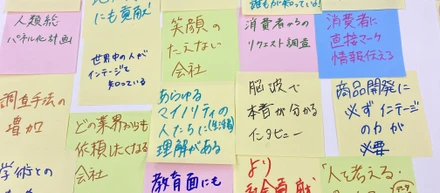 にも貢献!
人類総
パネル化計画
世界中の人が
インテージを
知っている
笑顔の
たえない
会社
消費者からの
リクエスト調査
消費者に
直接マーケ
情報伝える
調査手法の
増加
どの業界からも
依頼したくなる
会社
あらゆる
マイノリティの
人たちに
理解がある
脳波で
本音が分かる
インタビュー
商品開発に
必ずインテージ
の力が
必要
学術との
教育面にも
より
「人を考える」